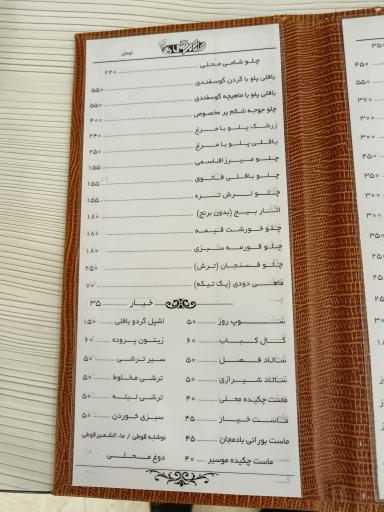 تومان
چلو شامی محلی ۲۲۰
باقلی پلو با گردن گوسفندی ۵۵۰
باقلی پلو با ماهیچه گوسفندی ۵۵۰
چلو جوجه شکم پر مخصوص ۴۰۰
زرشک پلو با مرغ ۲۴۰
باقلی پلو با مرغ ۲۵۰
چلو میرزاقاسمی ۱۵۵
چلو باقلی قاتوق ۱۵۵
چلو ترش تره ۱۵۵
انار بیج (بدون برنج) ۱۸۰
چلو خورشت قیمه ۱۸۰
چلو قورمه سبزی ۱۸۰
چلو فسنجان (ترش) ۲۵۰
ماهی دودی (یک تیکه) ۷۰
خیار ۳۵
سوپ روز ۵۰
کال کباب ۶۰
سالاد فصل ۵۰
سالاد شیرازی ۵۰
ماست چکیده محلی ۴۰
ماست خیار ۴۵
ماست بورانی بادمجان ۴۵
ماست چکیده موسیر ۴۰
اشپل گردو باقلی ۱۵۰
زیتون پرورده ۶۰
سیر ترشی ۵۰
ترشی مخلوط ۵۰
ترشی لیته ۵۰
سبزی خوردن ۵۰
نوشابه قوطی / ماءالشعیر قوطی
دوغ محلی
۳۵۰
۴۵۰
۵۵۰
۳۷۰
۳۰۰
۳۰۰
۴۵۰
۳۵۰
۳۰۰
۳۰۰